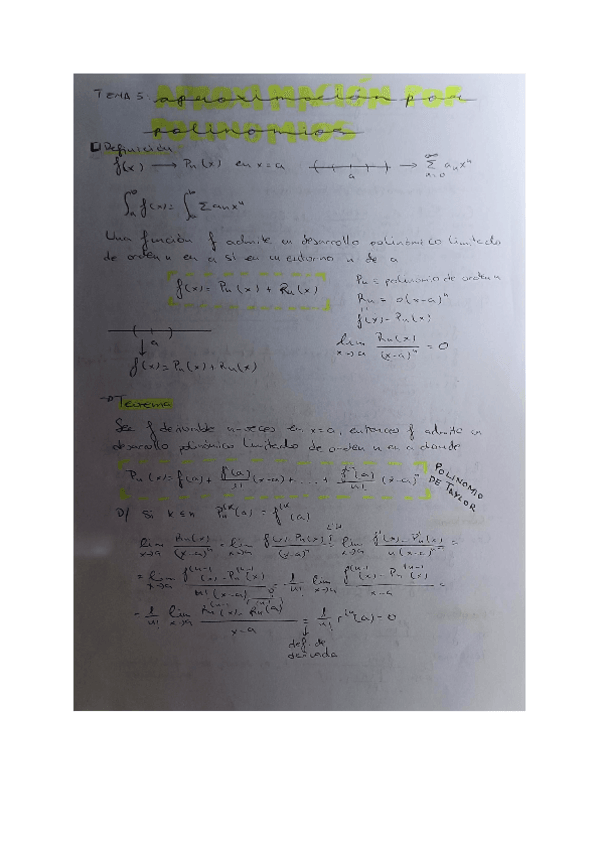 TEMA 5: APROXIMACIÓN POR
POLINOMIOS
Definición
f(x) → Pn(x) en x=a → ∑_{n=0}^{∞} aₙxⁿ
a
∫ f(x) = ∫ ∑ anxⁿ
Una función f admite un desarrollo polinómico limitado
de orden n en a si en un entorno n de a
f(x) = Pn(x) + Rn(x)
Pn = polinomio de orden n
Rn = o(x-a)ⁿ
f(x) - Pn(x)
lim x→a Rn(x)/(x-a)ⁿ = 0
a
f(x) = Pn(x) + Rn(x)
→ Teorema
Sea f derivable n-veces en x=a, entonces f admite un
desarrollo polinómico limitado de orden n en a donde
Pn(x) = f(a) + f'(a)/1! (x-a) + ... + fⁿ(a)/n! (x-a)ⁿ
POLINOMIO
DE TAYLOR
D/ Si k≤n Pn^(k (a) = f^(k (a)
lim x→a Rn(x)/(x-a)ⁿ = lim x→a f(x)-Pn(x)/(x-a)ⁿ = L'H lim x→a f'(x)-P'n(x)/n(x-a)ⁿ⁻¹ =
= lim x→a f^(n-1 (x) - Pn^(n-1 (x)/n!(x-a) = 1/n! lim x→a f^(n-1 (x) - Pn^(n-1 (x)/x-a =
= 1/n! lim x→a Rn^(n-1 (x) - Rn^(n-1 (a)/x-a = 1/n! r^(n (a) = 0
def. de
derivada